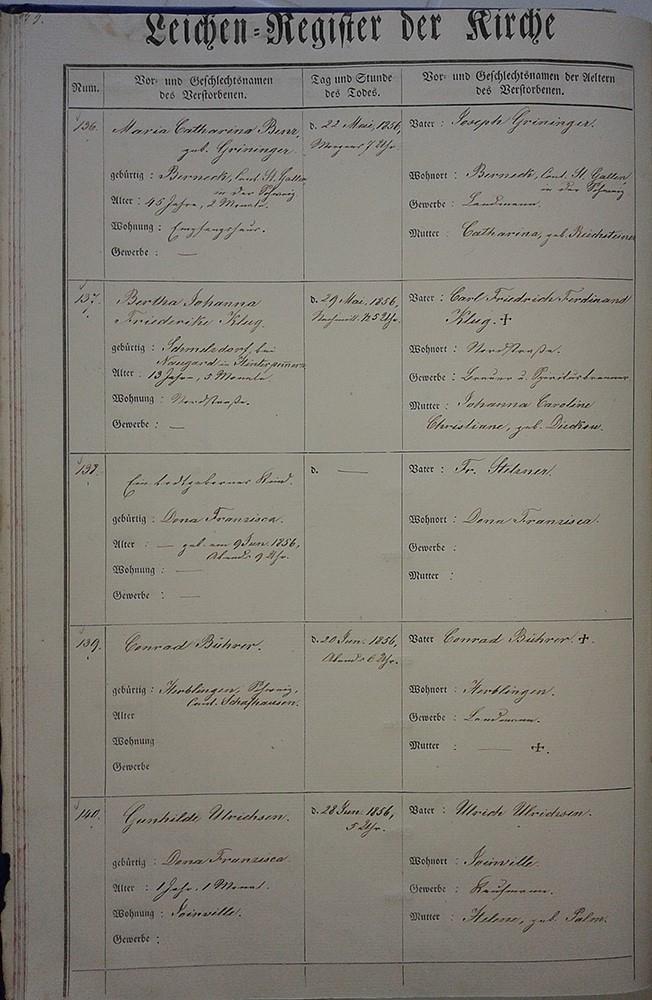 Leichen-Register der Kirche
Num.
Vor- und Geschlechtsnamen
des Verstorbenen.
Tag und Stunde
des Todes.
Vor- und Geschlechtsnamen der Aeltern
des Verstorbenen.
136.
Maria Catharina Benz,
geb. Grininger.
gebürtig : Berneck, Cant. St. Gallen
in der Schweiz.
Alter : 45 Jahre, 2 Monate.
Wohnung : Empfangshaus.
Gewerbe : —
d. 22 Mai, 1856,
Morgens 7 Uhr.
Vater : Joseph Grininger.
Wohnort : Berneck, Cant. St. Gallen
in der Schweiz
Gewerbe : Landmann.
Mutter : Catharina, geb. Reichsteiner
137.
Bertha Johanna
Friederike Klug.
gebürtig : Schmelzdorf, bei
Naugard in Hinterpommern
Alter : 13 Jahre, 5 Monate.
Wohnung : Nordstraße.
Gewerbe : —
d. 29 Mai. 1856,
Nachmitt. 5 Uhr.
Vater : Carl Friedrich Ferdinand
Klug. ✝
Wohnort : Nordstraße.
Gewerbe : Brauer u.
Mutter : Johanna Caroline
Christiane, geb. Dieckow.
138.
Ein todtgebornes Kind.
gebürtig : Dona Franzisca.
Alter : — geb. am 9 Jun. 1856,
Abends 9 Uhr.
Wohnung : —
Gewerbe : —
d. —
Vater : Fr. Stelzner.
Wohnort : Dona Franzisca.
Gewerbe :
Mutter :
139.
Conrad Bührer.
gebürtig : Herblingen, Schweiz,
Cant. Schafhausen.
Alter
Wohnung
Gewerbe
d. 20 Jun. 1856,
Abends 6 Uhr.
Vater Conrad Bührer. ✝
Wohnort : Herblingen.
Gewerbe : Landmann.
Mutter : — ✝.
140.
Gunhilde Ulrichsen.
gebürtig : Dona Franzisca
Alter : 1 Jahr, 1 Monat.
Wohnung : Joinville.
Gewerbe :
d. 28 Jun. 1856,
5 Uhr.
Vater : Ulrich Ulrichsen.
Wohnort : Joinville.
Gewerbe : Kaufmann.
Mutter : Helene, geb. Palm.